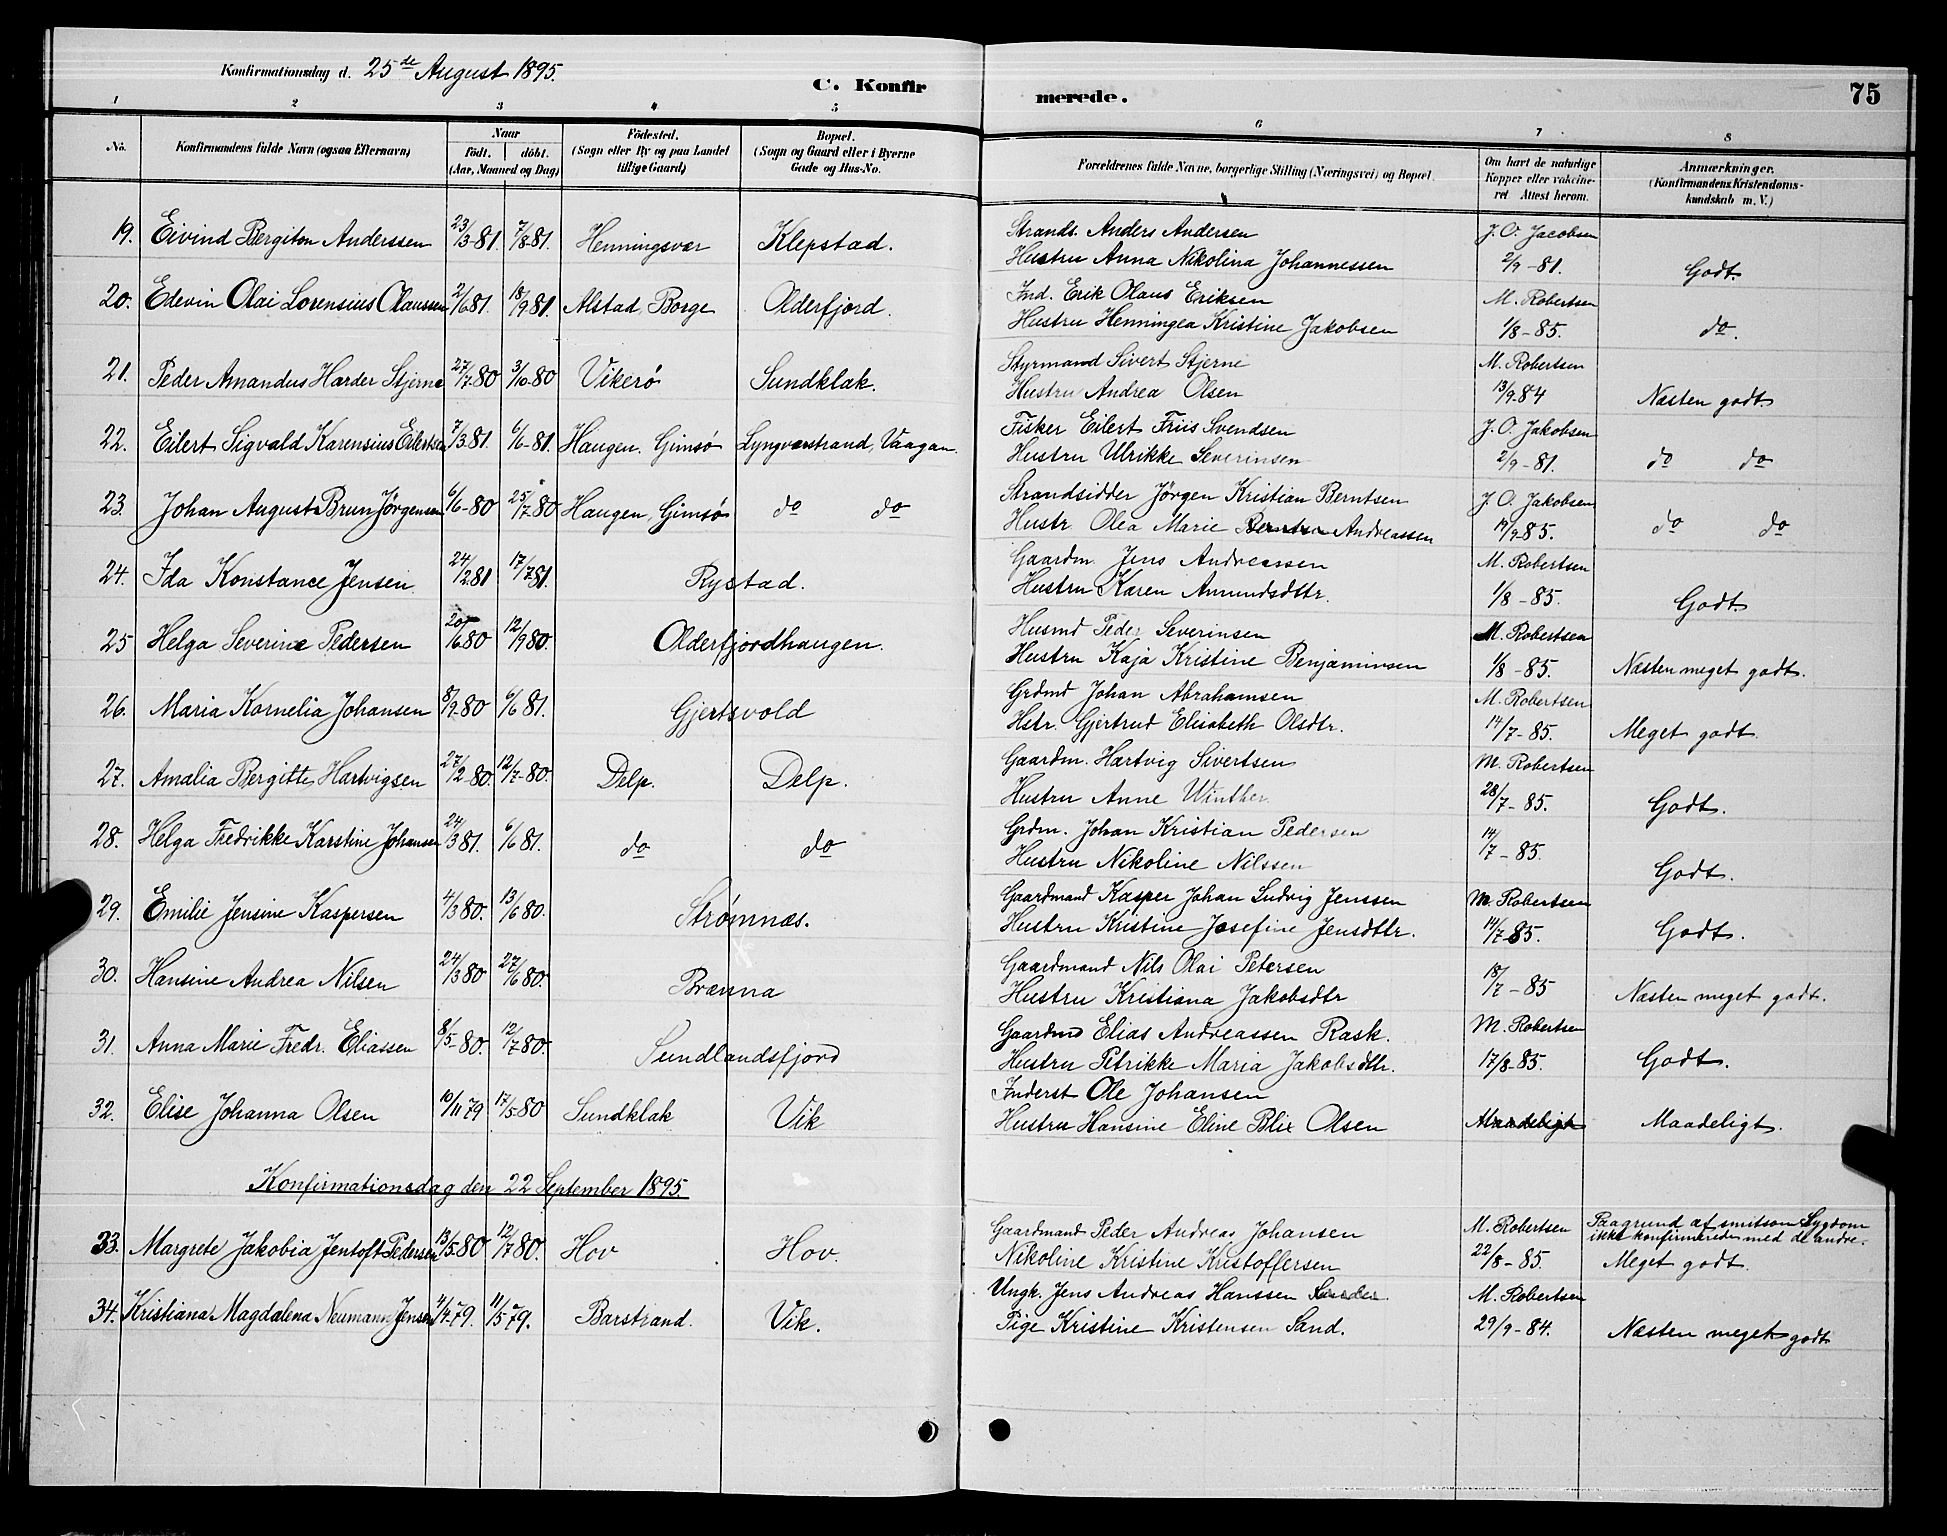 Konfirmationsdag d. 25de August 1895.
C. Konfirmerede.
75
1 2 3 4 5 6 7 8
No. Konfirmandens fulde Navn (ogsaa Efternavn) Naar födt. döbt. (Aar, Maaned og Dag) Födested. (Sogn eller By og paa Landet tillige Gaard) Bopæl. (Sogn og Gaard eller i Byerne Gade og Hus-No. Forældrenes fulde Navne, borgerlige Stilling (Næringsvei) og Bopæl. Om havt de naturlige Kopper eller vakcineret Attest herom. Anmærkninger. (Konfirmandens Kristendomskundskab m. V.)
19. Eivind Bergiton Anderssen 23/3-81. 7/8-81. Henningsvær Klepstad. Strands. Anders Andersen J. O. Jacobsen
Hustru Anna Nikolina Johannessen 2/9-81. Godt
20. Edevin Olai Lorensius Olaussen 2/6 81. 18/9 81. Alstad, Borge Olderfjord. Ind. Erik Olaus Eriksen M. Robertsen
Hustru Henningea Kristine Jakobsen 1/8-85. do.
21. Peder Amandus Harder Stjerne 27/7-80 3/10-80 Vikerø Sundklak. Styrmand Sivert Stjerne M. Robertsen
Hustru Andrea Olsen 13/9-84 Næsten godt.
22. Eilert Sigvald Karensius Eilertsen 7/3 81. 6/6-81. Haugen. Gimsø Lyngværstrand, Vaagan. Fisker Eilert Friis Svendsen J. O. Jakobsen
Hustru Ulrikke Severinsen 2/9-81. do do
23. Johan August Brun Jørgensen 6/6-80 25/7-80 Haugen, Gimsø do do Strandsidder Jørgen Kristian Berntsen J. O. Jakobsen
Hustr Olea Marie Berntsen Andreassen 19/9 85. do do
24. Ida Konstance Jensen 24/2 81 17/7 81. Rystad. Gaardm. Jens Andreassen M. Robertsen
Hustru Karen Amundsdttr. 1/8-85. Godt
25 Helga Severine Pedersen 20/6 80 12/9 80. Olderfjordhaugen. Husmd Peder Severinsen M. Robertsen
Hustru Kaja Kristine Benjaminsen 1/8-85. Næsten meget godt.
26. Maria Kornelia Johansen 8/9-80 6/6 81. Gjertsvold Grdmd Johan Abrahamsen M. Robertsen
Hstr. Gjertrud Elisabeth Olsdtr. 14/7-85. Meget godt
27. Amalia Bergitte Hartvigsen 27/2-80. 12/7-80. Delp. Delp. Gaardm. Hartvig Sivertsen M. Robertsen
Hustru Anne Winther. 28/7-85. Godt.
28. Helga Fredrikke Karstine Johansen 24/3 81. 6/6 81. do do Grdm. Johan Kristian Pedersen 14/7-85.
Hustru Nikoline Nilssen Godt.
29. Emilie Jensine Kaspersen 4/3 80. 13/6 80. Strømnæs. Gaardmand Kasper Johan Ludvig Jenssen M. Robertsen
Hustru Kristine Josefine Jensdttr. 14/7 85. Godt.
30. Hansine Andrea Nilsen 24/3 80 27/6 80. Brænna Gaardmand Nils Olai Petersen 18/7-85
Hustru Kristiana Jakobsdtr Næsten meget godt.
31. Anna Marie Fredr. Eliassen 8/5-80. 12/7 80. Sundlandsfjord Gaardmd Elias Andreassen Rask. M. Robertsen
Hustru Petrikke Maria Jakobsdttr. 17/8-85. Godt.
32. Elise Johanna Olsen 10/11 79 17/5-80 Sundklak Vik Inderst Ole Johansen
Hustru Hansine Eline Blix Olsen Maadeligt Maadeligt.
Konfirmationsdag den 22 September 1895.
33. Margrete Jakobia Jentoft Pedersen 13/5 80 12/7 80. Hov Hov. Gaardmand Peder Andreas Johansen M. Robertsen Paagrund af smitsom Sygdom
ikke konfirmereden med de andre.
Nikoline Kristine Kristoffersen 22/8-85. Meget godt.
34. Kristiana Magdalena Neumann Jensen 4/4 79. 11/5 79. Barstrand. Vik. Ungk. Jens Andreas Hanssen M. Robertsen
Pige Kristine Kristensen Sand. 29/9-84. Næsten meget godt